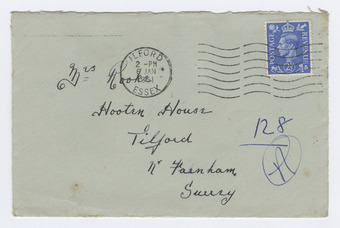 ILFORD
2 - PM
6 JAN
ESSEX
POSTAGE
REVENUE
Mrs Cooke
Hooten House
Tilford
Nr Farnham
Surrey
128